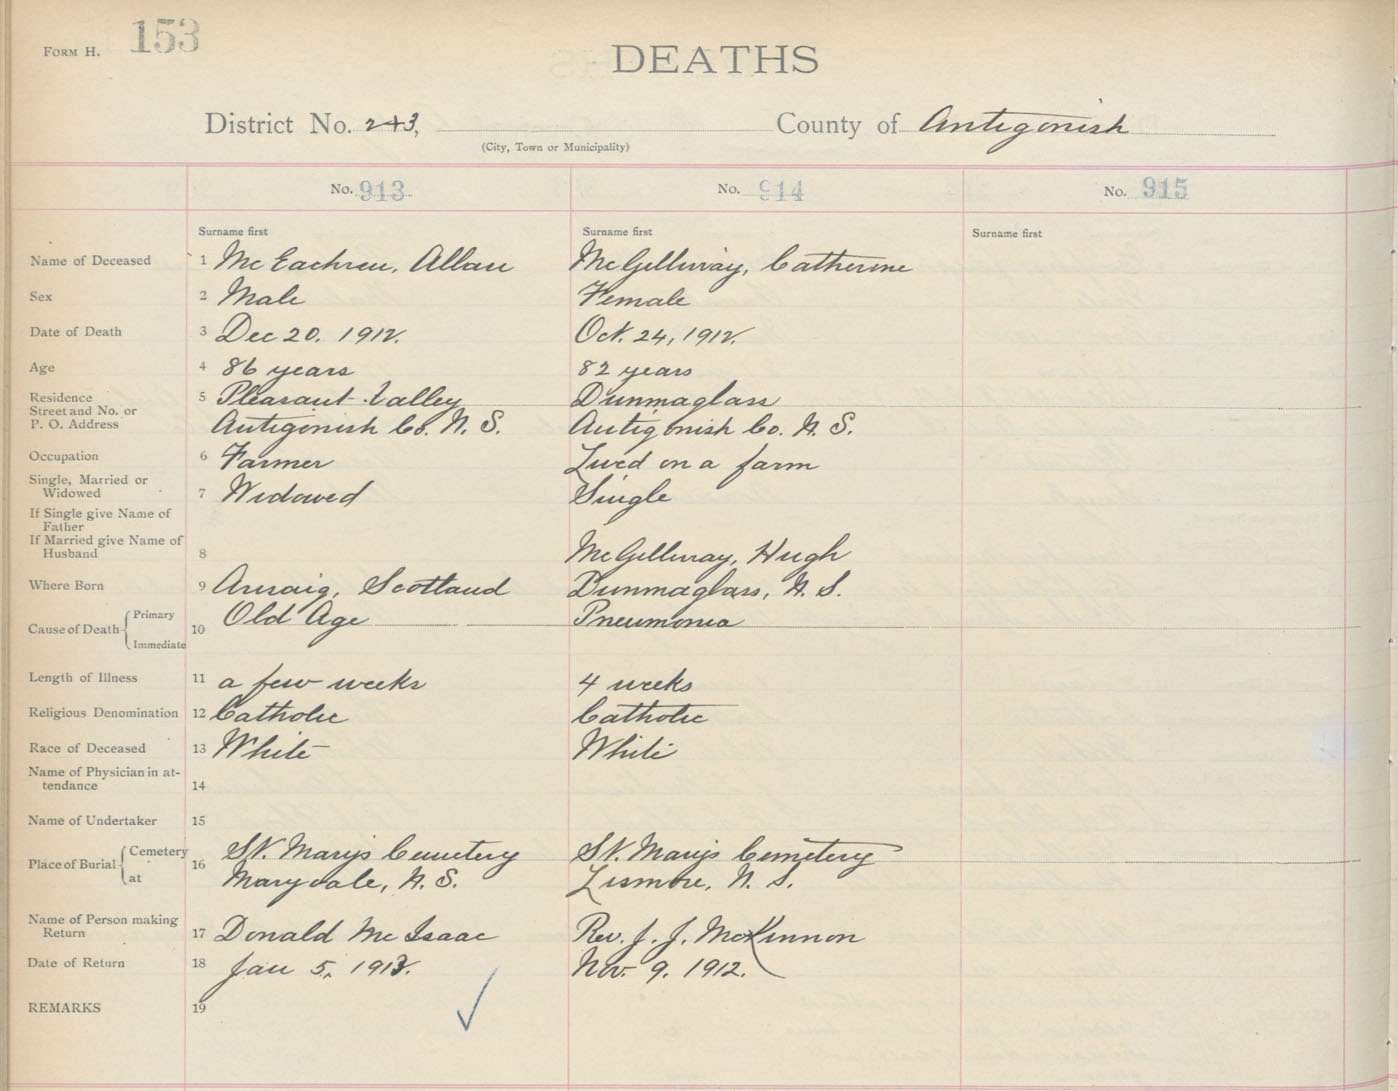 FORM H. 153
DEATHS
District No. 2+3, County of Antigonish
(City, Town or Municipality)
No. 913 No. 914 No. 915
Surname first Surname first Surname first
Name of Deceased 1 McEachren, Allan McGillivray, Catherine
Sex 2 Male Female
Date of Death 3 Dec 20. 1912. Oct. 24, 1912.
Age 4 86 years 82 years
Residence 5 Pleasant Valley Dunmaglass
Street and No. or
P. O. Address Antigonish Co. N. S. Antigonish Co. N. S.
Occupation 6 Farmer Lived on a farm
Single, Married or
Widowed 7 Widowed Single
If Single give Name of
Father
If Married give Name of
Husband 8 McGillivray, Hugh
Where Born 9 Arisaig, Scotland Dunmaglass, N. S.
Cause of Death Primary 10 Old Age Pneumonia
Immediate
Length of Illness 11 a few weeks 4 weeks
Religious Denomination 12 Catholic Catholic
Race of Deceased 13 White White
Name of Physician in at-
tendance 14
Name of Undertaker 15
Place of Burial Cemetery 16 St. Mary's Cemetery St. Mary's Cemetery
at Maryvale, N. S. Lismore, N. S.
Name of Person making
Return 17 Donald McIsaac Rev. J. J. McKinnon
Date of Return 18 Jan 5, 1913. Nov. 9. 1912.
REMARKS 19